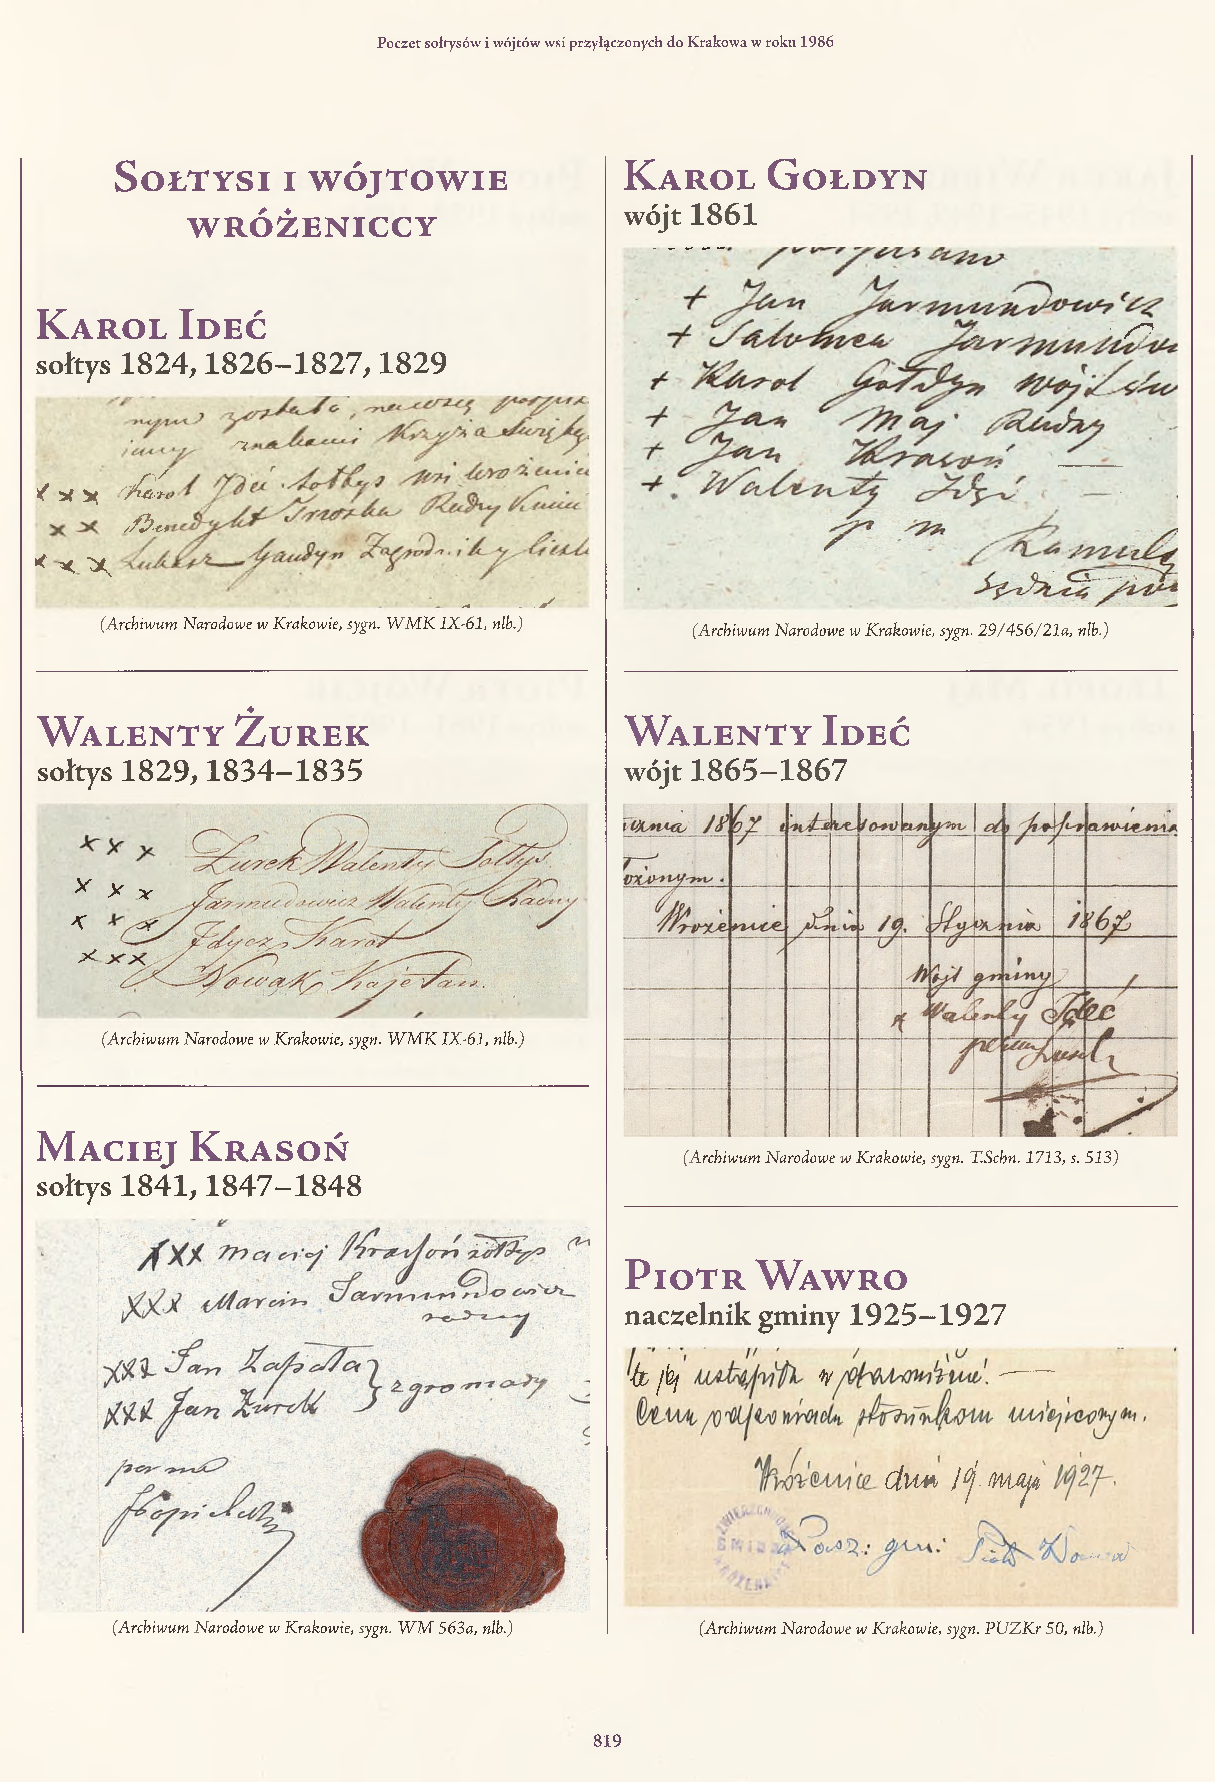 Poczet sołtysów i wójtów wsi przyłączonych do Krakowa w roku 1986
Sołtysi i wójtowie
wróżeniccy
Karol Ideć
sołtys 1824, 1826–1827, 1829
nym została, na coszę
znakami Krzyża
x x x Karol Ideć sołtys wsi
x x Benedykt Trzoska Radny
x x x Łukasz Gaudyn Zagrodniky
(Archiwum Narodowe w Krakowie, sygn. WMK IX-61, nlb.)
Walenty Żurek
sołtys 1829, 1834–1835
x x x Żurek Walenty Sołtys
x x x Jarmudowicz Walenty Radny
x x x Idycz Karol
x x x Nowak Kajetan.
(Archiwum Narodowe w Krakowie, sygn. WMK IX-61, nlb.)
Maciej Krasoń
sołtys 1841, 1847–1848
XXX Maciej Krasoń sołtys
XXX Marcin Jarmundowicz
radny
XXX Jan Zapała
XXX Jan Żurek } z gromady
(Archiwum Narodowe w Krakowie, sygn. WM 563a, nlb.)
Karol Gołdyn
wójt 1861
+ Jan Jarmundowicz
+ Salomea Jarmundo
+ Karol Gołdyn wójt
+ Jan Maj Radny
+ Jan Krasoń
+ Walenty
p m
(Archiwum Narodowe w Krakowie, sygn. 29/456/21a, nlb.)
Walenty Ideć
wójt 1865–1867
1867 interesowanym do poprawienia
ożonym.
Wrożenice dnia 19. Stycznia 1867
Wójt gminy
x Walenty Ideć
(Archiwum Narodowe w Krakowie, sygn. T.Schn. 1713, s. 513)
Piotr Wawro
naczelnik gminy 1925–1927
Cena odpowiada stosunkom miejscowym.
Wróżenice dnia 19. maja 1927.
gm: Piotr Wawro
(Archiwum Narodowe w Krakowie, sygn. PUZKr 50, nlb.)
819